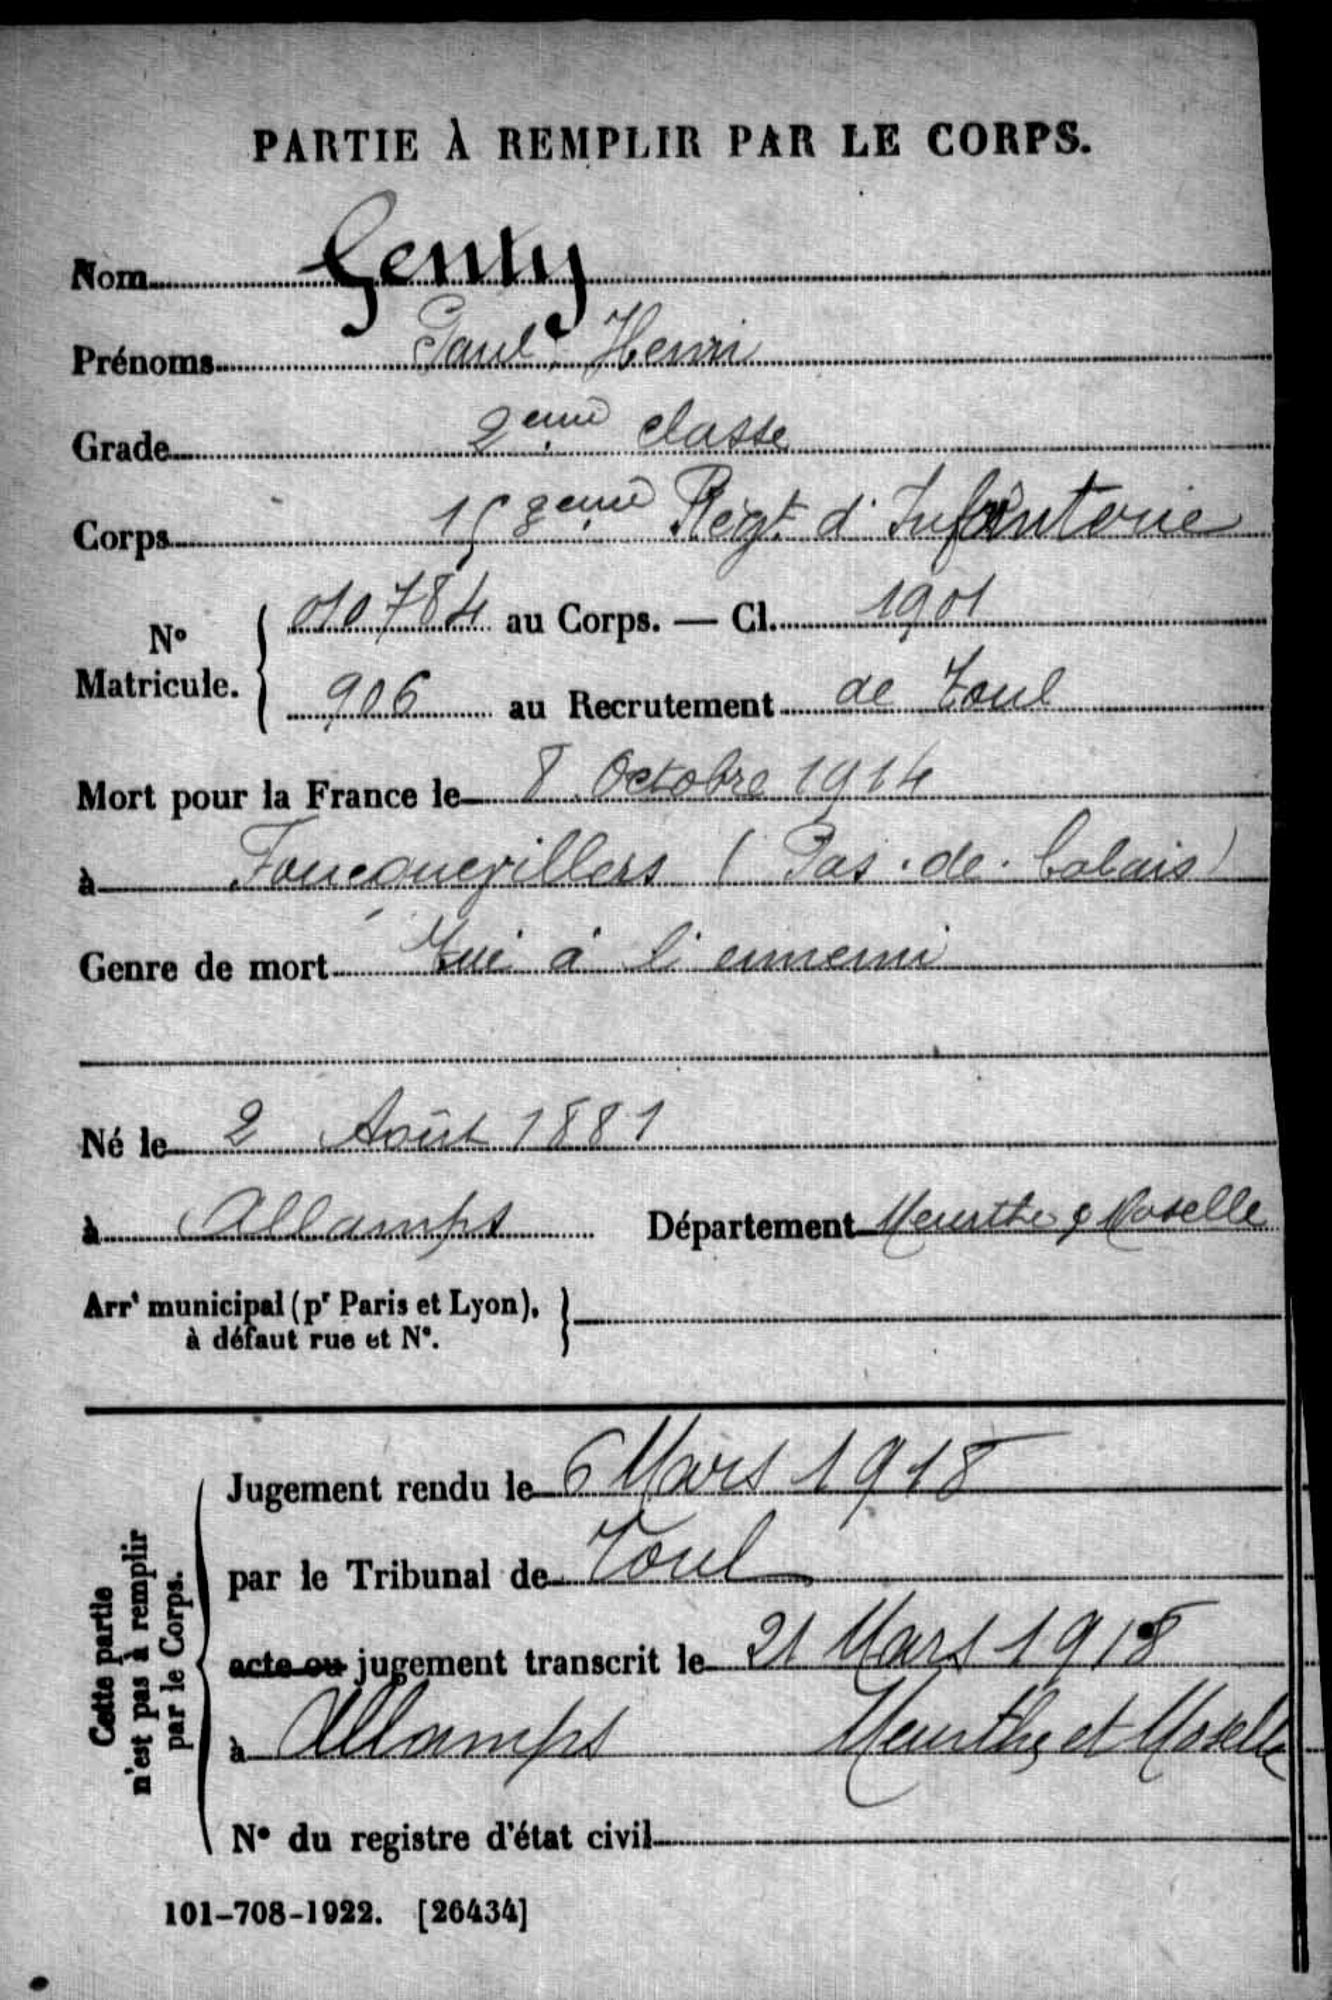 PARTIE À REMPLIR PAR LE CORPS.
Nom Genty
Prénoms Paul Henri
Grade 2eme classe
Corps 158eme Régt d'Infanterie
No Matricule. { 010784 au Corps. — Cl. 1901
906 au Recrutement de Toul
Mort pour la France le 8 Octobre 1914
à Foucquevillers (Pas-de-Calais)
Genre de mort Tué à l'ennemi
Né le 2 Août 1881
à Allamps Département Meurthe & Moselle
Arrt municipal (pr Paris et Lyon), }
à défaut rue et N°.
Cette partie
n'est pas à remplir
par le Corps.
Jugement rendu le 6 Mars 1918
par le Tribunal de Toul
acte ou jugement transcrit le 21 Mars 1918
à Allamps Meurthe et Moselle
N° du registre d'état civil
101-708-1922. [26434]